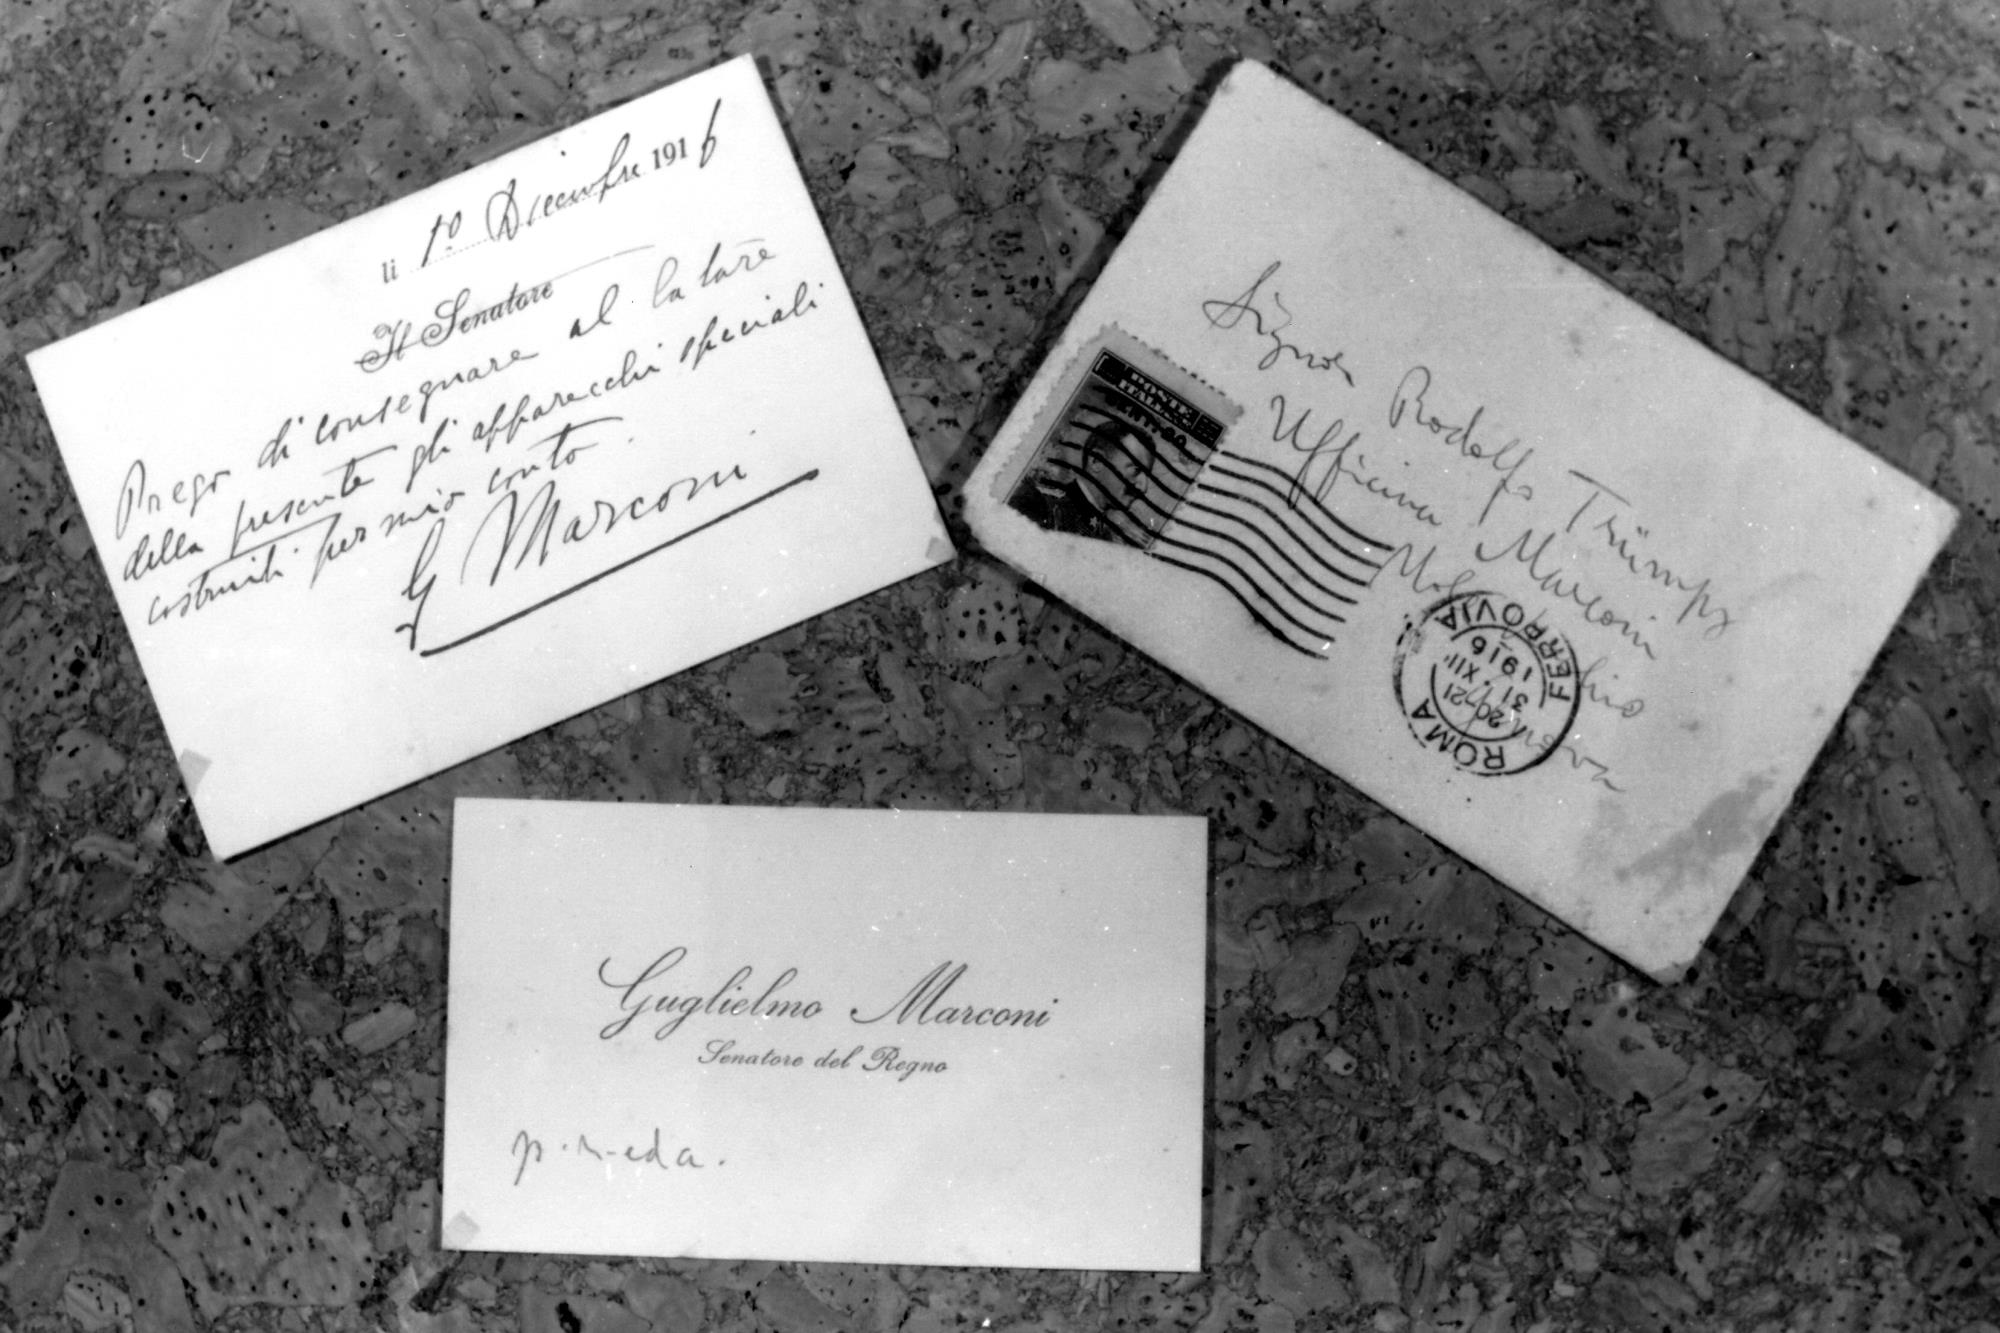 li 1º Dicembre 1916
Il Senatore
Prego di consegnare al latore
della presente gli apparecchi speciali
costruiti per mio conto
G Marconi
Signor Rodolfo Trümpy
Officina Marconi
POSTE
ITALIANE
ROMA FERROVIA
20-21
31 XII
1916
Guglielmo Marconi
Senatore del Regno